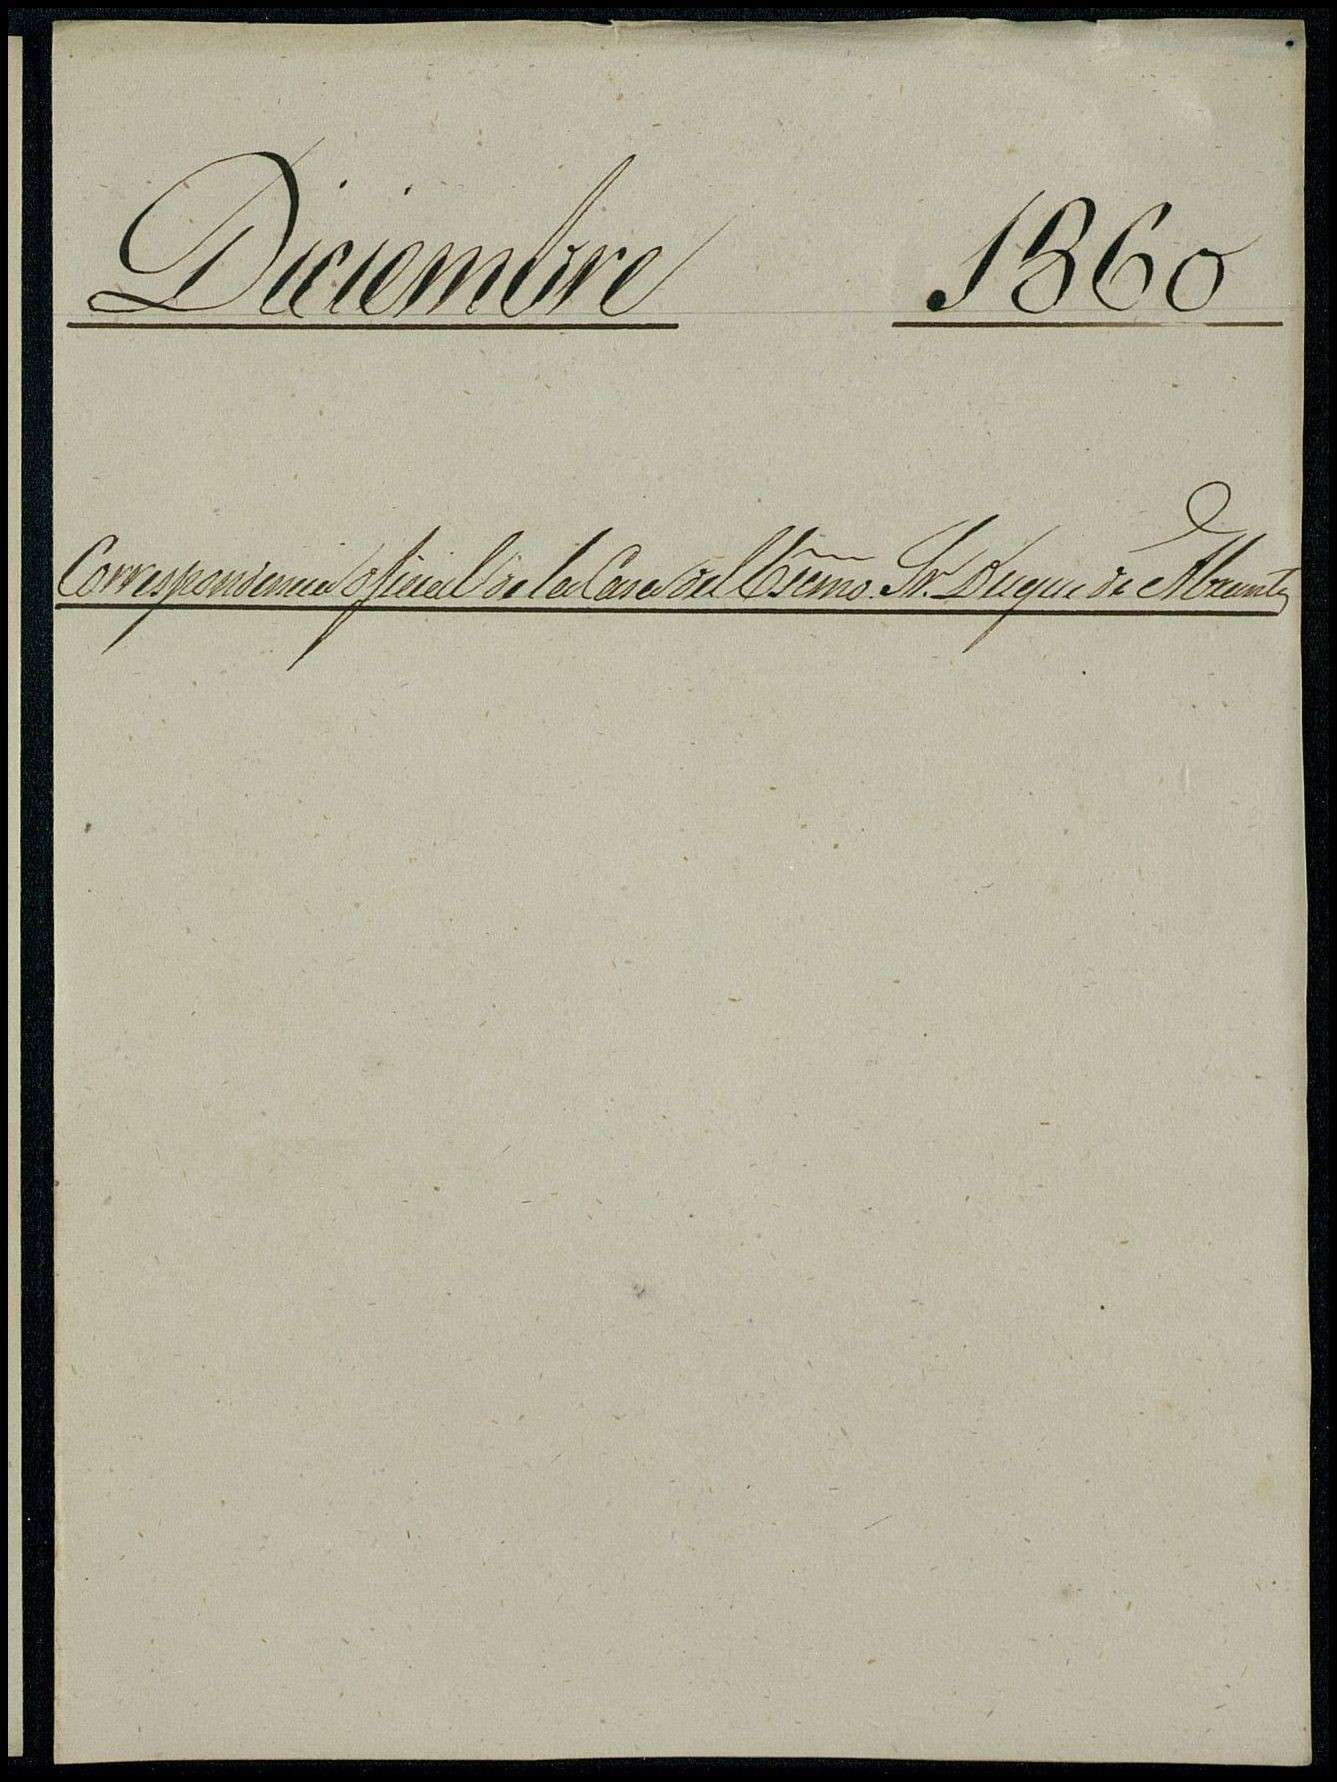 Diciembre 1860
Correspondencia oficial de la Casa del Escmo. Sr. Duque de Abrantes